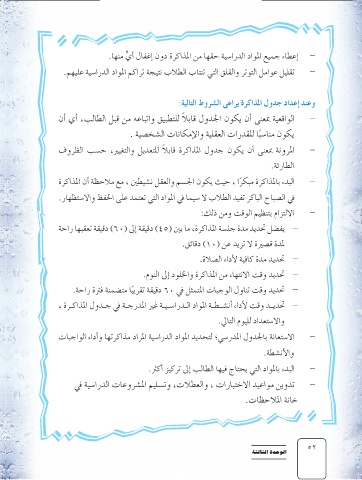 – إعطاء جميع المواد الدراسية حقها من المذاكرة دون إغفال أيٍّ منها.
– تقليل عوامل التوتر والقلق التي تنتاب الطلاب نتيجة تراكم المواد الدراسية عليهم.
وعند إعداد جدول المذاكرة يراعى الشروط التالية:
– الواقعية بمعنى أن يكون الجدول قابلاً للتطبيق واتباعه من قبل الطالب، أي أن
يكون مناسبًا للقدرات العقلية والإمكانات الشخصية .
– المرونة بمعنى أن يكون جدول المذاكرة قابلاً للتعديل والتغيير، حسب الظروف
الطارئة.
– البدء بالمذاكرة مبكرًا ، حيث يكون الجسم والعقل نشيطين ، مع ملاحظة أن المذاكرة
في الصباح الباكر تفيد الطلاب لا سيما في المواد التي تعتمد على الحفظ والاستظهار.
– الالتزام بتنظيم الوقت ومن ذلك:
– يفضل تحديد مدة جلسة المذاكرة، ما بين (٤٥) دقيقة إلى (٦٠) دقيقة تعقبها راحة
لمدة قصيرة لا تزيد عن (١٠) دقائق.
– تحديد مدة كافية لأداء الصلاة.
– تحديد وقت الانتهاء من المذاكرة والخلود إلى النوم.
– تحديد وقت تناول الوجبات المتمثل في ٦٠ دقيقة تقريبًا متضمنة فترة راحة.
– تحديد وقت لأداء أنشطة المواد الدراسية غير المدرجة في جدول المذاكرة ،
والاستعداد لليوم التالي.
– الاستعانة بالجدول المدرسي؛ لتحديد المواد الدراسية المراد مذاكرتها وأداء الواجبات
والأنشطة.
– البدء بالمواد التي يحتاج فيها الطالب إلى تركيز أكثر.
– تدوين مواعيد الاختبارات ، والعطلات، وتسليم المشروعات الدراسية في
خانة الملاحظات.
٥٢
الوحدة الثالثة